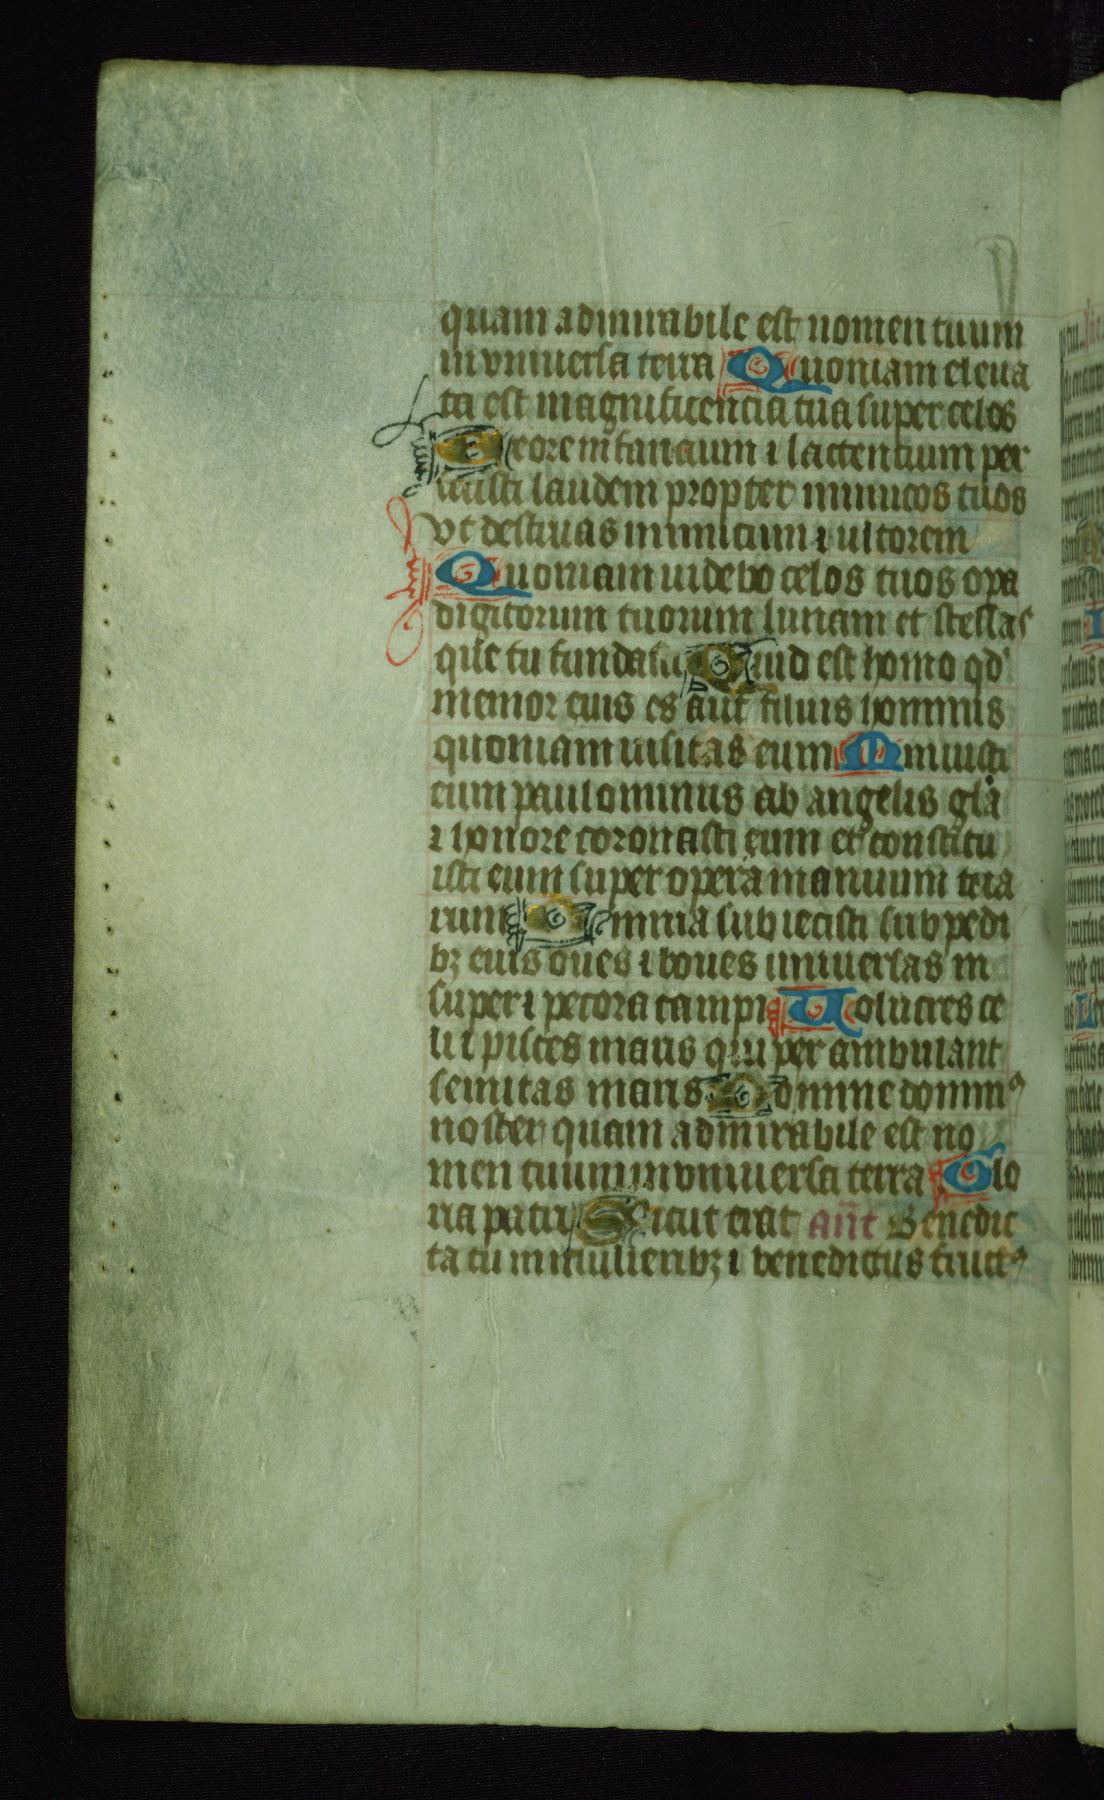 quam admirabile est nomen tuum
in vniuersa terra Quoniam eleua
ta est magnificencia tua super celos
Ex ore infancium ⁊ lactencium per
fecisti laudem propter inimicos tuos
vt destruas inimicum ⁊ ultorem
Quoniam uidebo celos tuos opa
digitorum tuorum lunam et stellas
que tu fundasti Quid est homo qd'
memor euis es aut filius hominis
quoniam uisitas eum Minuisti
eum paulominus ab angelis gl'a
⁊ honore coronasti eum et constitu
isti eum super opera manuum tua
rum Omnia subiecisti sub pedi
bꝫ euis oues ⁊ boues uniuersas in
super ⁊ pecora campi Uolucres ce
li ⁊ pisces maris qui per ambulant
semitas maris Domine dominꝰ
noster quam admirabile est no
men tuum in vniuersa terra Glo
ria patri Sicut erat añt Benedic
ta tu in mulieribꝫ ⁊ benedictus fructꝰ